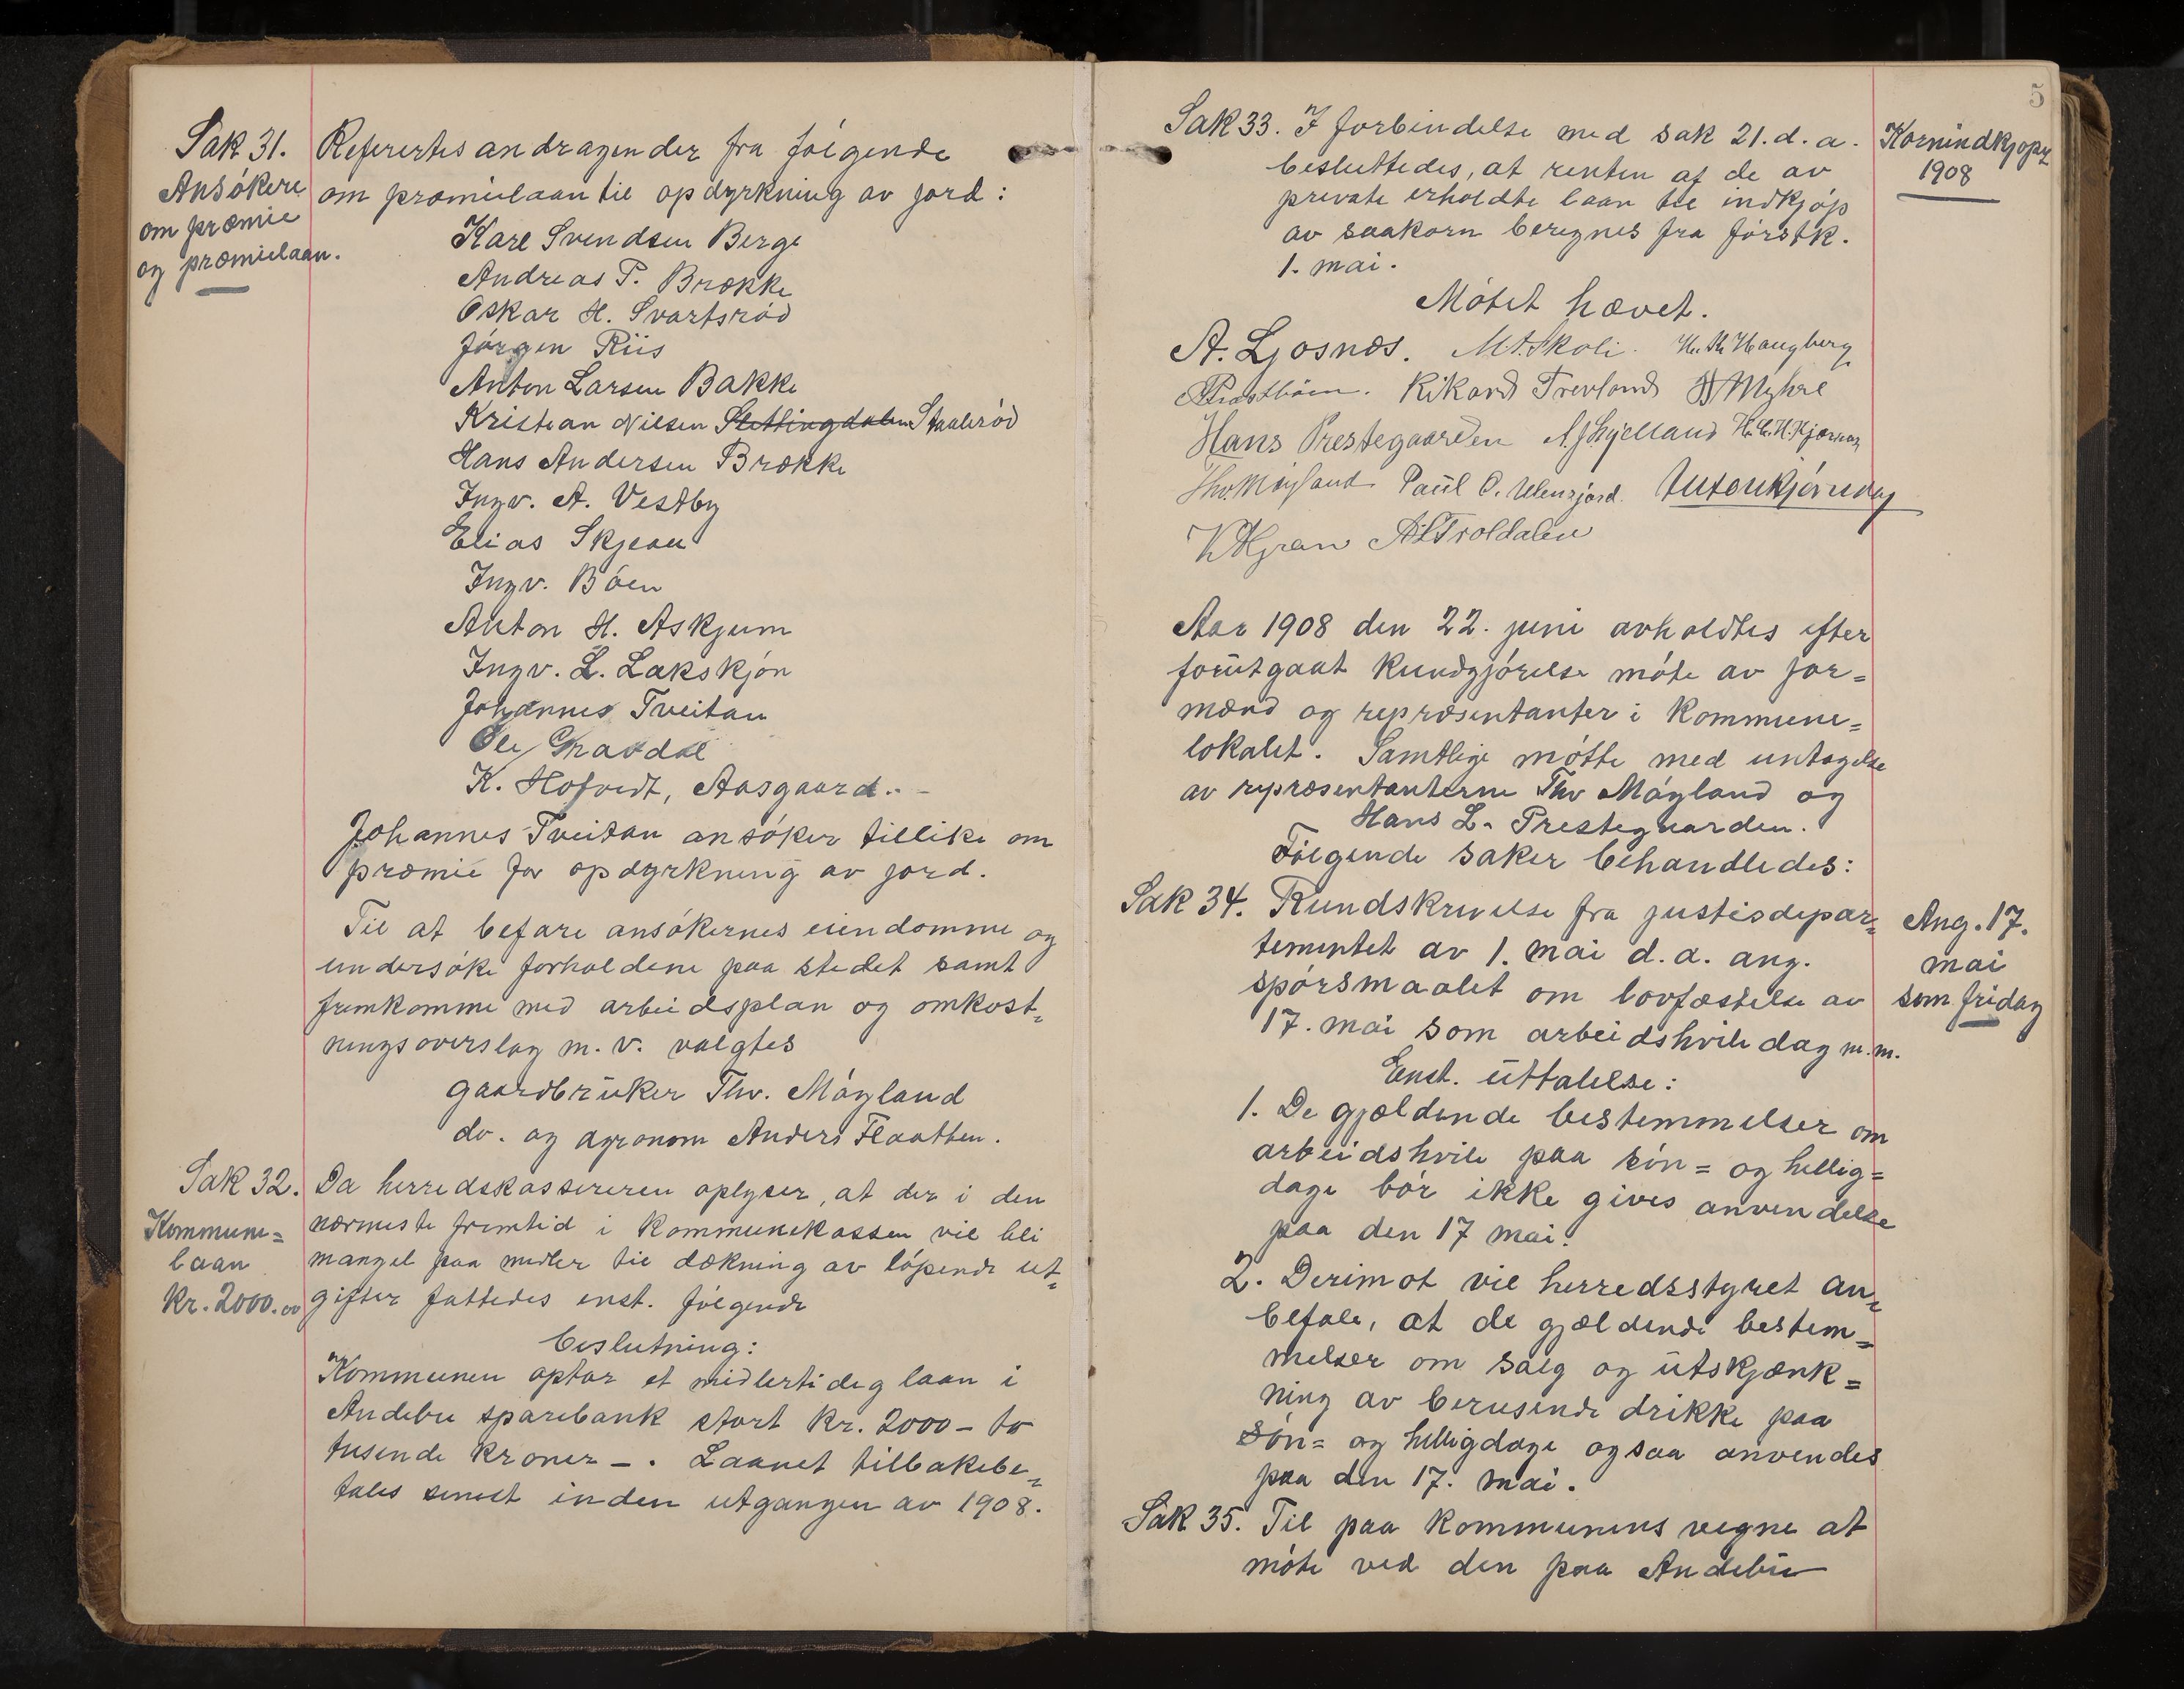 Sak 31.
Ansökere
om præmie
og præmielaan.
Referertes andragender fra fölgende
om præmielaan til opdyrkning av jord:
Karl Svendsen Berge
Andreas P. Brække
Oskar H. Svartsröd
Jörgen Riis
Anton Larsen Bakke
Kristian Nilsen Slettingdalen Staaleröd
Hans Andersen Brække
Ingv. A. Vestby
Elias Skjeau
Ingv. Böen
Anton H. Askjum
Ingv. L. Lakskjön
Johannes Tveitan
Ole
K. Hofvedt, Aasgaard.
Johannes Tveitan ansöker tillike om
præmie for opdyrkning av jord.
Til at befare ansökernes eiendomme og
undersöke forholdene paa stedet samt
fremkomme med arbeidsplan og omkost-
ningsoverslag m. v. valgtes
gaardbruker Thv. Möyland
do. og agronom Anders Flaatten.
Sak 32.
Kommune=
laan
Kr. 2000.00
Da herredskassereren oplyser, at der i den
nærmeste fremtid i kommunekassen vil bli
mangel paa midler til dækning av löpende ut-
gifter fattedes enst. fölgende
beslutning:
Kommunen optar et midlertidig laan i
Andebu sparebank stort kr. 2000 - to
tusende kroner -. Laanet tilbakebe-
tales senest inden utgangen av 1908.
5
Sak 33. I forbindelse med sak 21. d. a.
besluttedes, at renten af de av
private erholdte laan til indkjöp
av saakorn beregnes fra förstk.
1. mai.
Kornindkjöp
1908
Mötet hævet.
A. Ljosnæs. M. A. Skoli. H. Th Haugberg
Rikard Trevland H Myhre
Hans Prestegaarden A. J. Gjelland
Thv. Möyland Paul C. Anton Kjörndag
K Gran A L Troldalen
Aar 1908 den 22. juni avholdtes efter
forutgaat kundgjörelse möte av for=
mænd og repræsentanter i kommune=
lokalet. Samtlige mötte med untagelse
av repræsentanterne Thv Möyland og
Hans L. Prestegaarden.
Fölgende saker behandledes:
Sak 34. Rundskrivelse fra justisdepar-
tementet av 1. mai d. a. ang.
spörsmaalet om lovfæstelse av
17. mai som arbeidshviledag m. m.
Ang. 17.
mai
som fridag
Enst. uttalelse:
1. De gjældende bestemmelser om
arbeidshvile paa sön= og hellig=
dage bör ikke gives anvendelse
paa den 17 mai.
2. Derimot vil herredsstyret an-
befale, at de gjældende bestem-
melser om salg og utskjænk=
ning av berusende drikke paa
sön= og helligdage ogsaa anvendes
paa den 17. mai.
Sak 35. Til paa kommunens vegne at
möte ved den paa Andebu